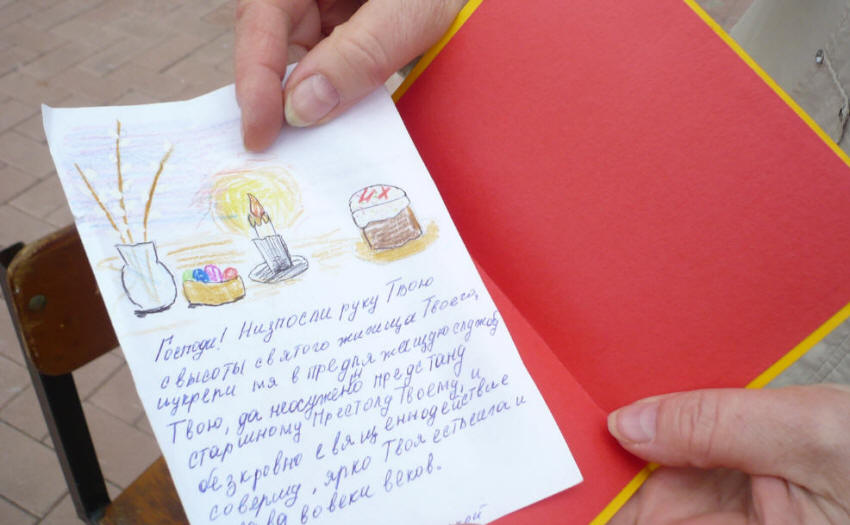 ХХ
Господи! Низпосли руку Твою
с высоты святого жилища Твоего,
и укрепи мя в предлежащую службу
Твою, да неосужено предстану
страшному Престолу Твоему, и
безкровно священнодействие
совершу, ярко Твоя есть сила и
во веки веков.